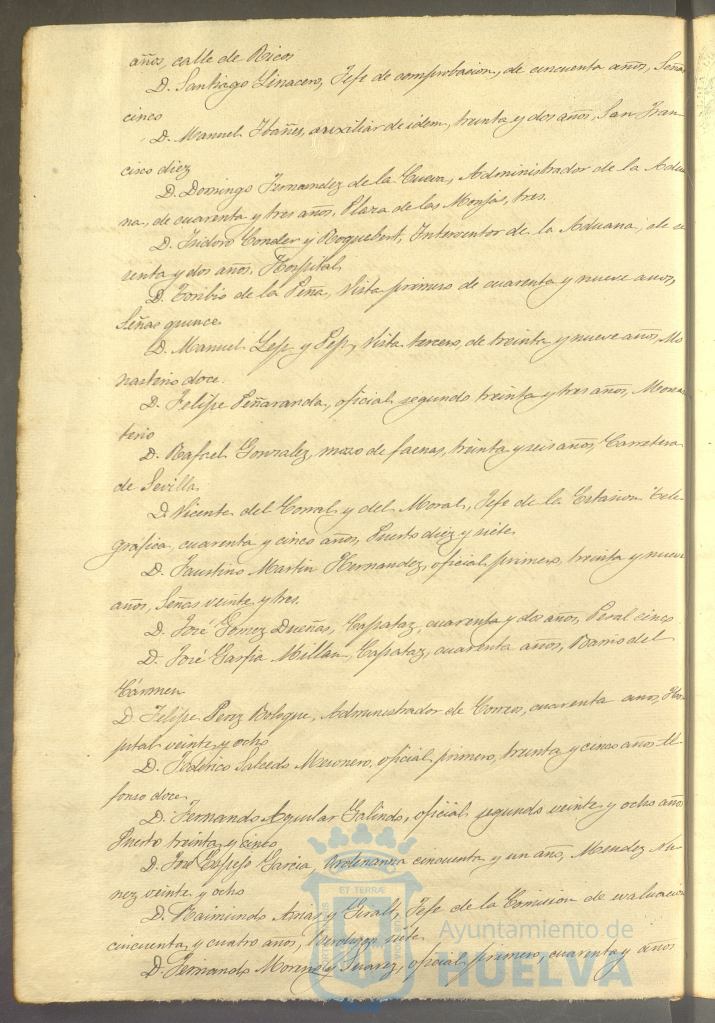 años, calle de Ricos
D. Santiago Linacero, Jefe de comprobacion, de cincuenta años, Señas
cinco
D. Manuel Ibañes, auxiliar de idem, treinta y dos años, San Fran-
cisco diez
D. Domingo Fernandez de la Cueva, Administrador de la Adua-
na, de cuarenta y tres años, Plaza de las Monjas, tres.
D. Isidoro Conder y Roquebert, Interventor de la Aduana, de
renta y dos años, Hospital
D. Toribio de la Peña, Vista primero de cuarenta y nueve años,
Señas quince
D. Manuel Vista tercero, de treinta y nueve años, Mo
nasterio doce.
D. Felipe Peñaranda, oficial segundo treinta y tres años, Monas
terio
D. Rafael Gonzalez, mozo de faenas, treinta y seis años, Carretera
de Sevilla
D. Vicente del Corral y del Moral, Jefe de la Estacion tele-
grafica, cuarenta y cinco años, Puerto diez y siete
D. Faustino Martin Hernandez, oficial primero, treinta y nueve
años, Señas veinte y tres.
D. José Gomez Dueñas, Capataz, cuarenta y dos años, Peral cinco
D. José Garfia Millan, Capataz, cuarenta años, Barrio del
Cármen
D. Felipe Perez Administrador de Correos, cuarenta años, Hos
pital veinte y ocho
D. Salcedo Mesonero, oficial primero, treinta y cinco años
fonso doce
D. Fernando Aguilar Galindo, oficial segundo veinte y ocho años
Puerto treinta y cinco
D. José Garcia, Ordenanza cincuenta y un año, Mendez Nu-
ñez veinte y ocho
D. Raimundo Arias y Giralt, Jefe de la Comision de evaluacion
cincuenta y cuatro años, siete
D. Fernando Moreno y Suarez, oficial primero, cuarenta y cinco
ET TERRÆ
Ayuntamiento de
HUELVA